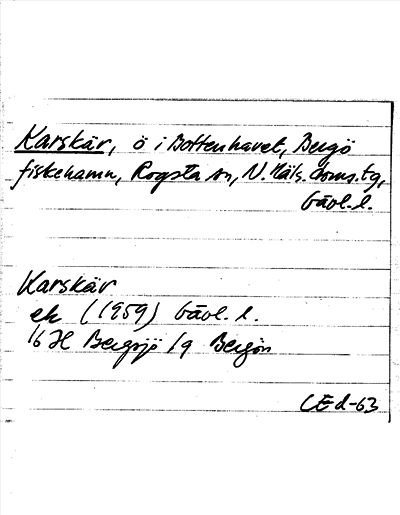 Karskär, ö i Bottenhavet, Bergö
fiskehamn, Rogsta sn, N. Häls. doms.tg,
Gävl. l.
Karskär
ek (1959) Gävl. l.
16 H Bergsjö 19 Bergön
CEd-63